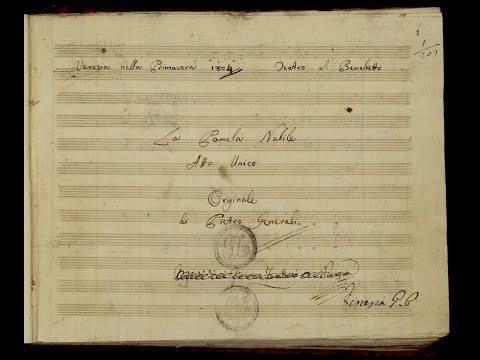 1
1/201
Venezia nella Primavera 1804 Teatro S. Benedetto
La Pamela Nubile
Atto Unico
Originale
di Pietro Generali